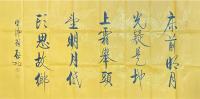 床前明月
光疑是地
上霜舉頭
望明月低
頭思故鄉